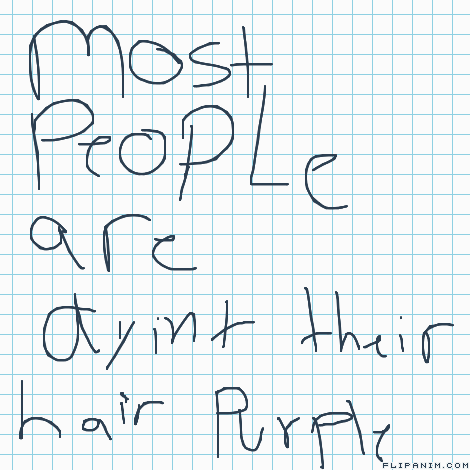 Most
PeoPLe
are
ayint their
hair Purple
FLIPANIM.COM